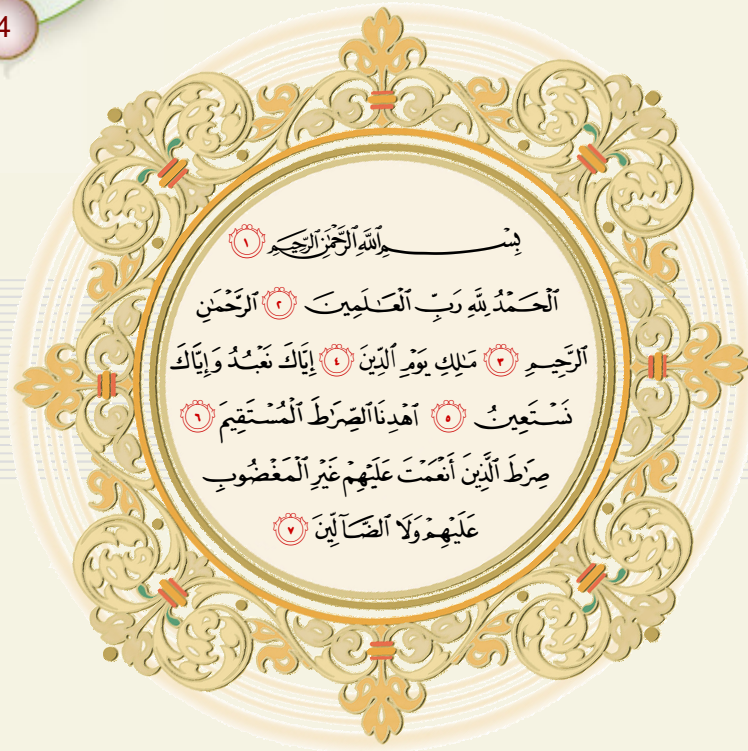 4
بِسْمِ ٱللَّهِ ٱلرَّحْمَٰنِ ٱلرَّحِيمِ ١
ٱلْحَمْدُ لِلَّهِ رَبِّ ٱلْعَٰلَمِينَ ٢ ٱلرَّحْمَٰنِ
ٱلرَّحِيمِ ٣ مَٰلِكِ يَوْمِ ٱلدِّينِ ٤ إِيَّاكَ نَعْبُدُ وَإِيَّاكَ
نَسْتَعِينُ ٥ ٱهْدِنَا ٱلصِّرَٰطَ ٱلْمُسْتَقِيمَ ٦
صِرَٰطَ ٱلَّذِينَ أَنْعَمْتَ عَلَيْهِمْ غَيْرِ ٱلْمَغْضُوبِ
عَلَيْهِمْ وَلَا ٱلضَّآلِّينَ ٧